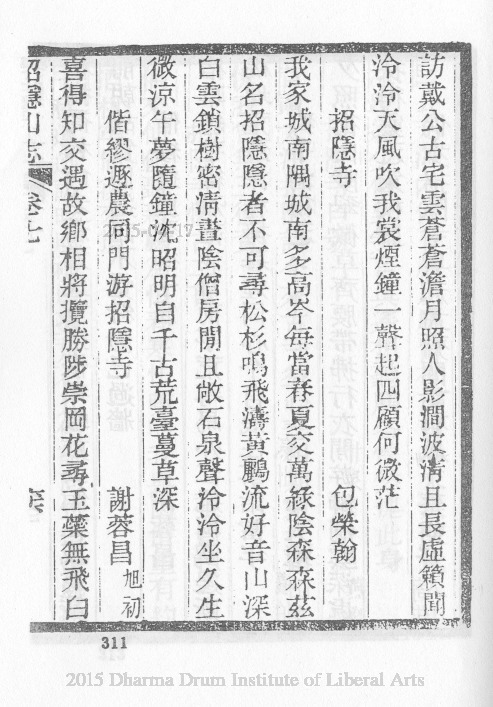 訪戴公古宅雲蒼蒼澹月照人影澗波清且長虛籟聞
泠泠天風吹我裳煙鐘一聲起四顧何微茫
招隱寺 包榮翰
我家城南隅城南多高岑每當春夏交萬綠陰森森茲
山名招隱隱者不可尋松杉鳴飛濤黃鸝流好音山深
白雲鎖樹密清晝陰僧房閒且敞石泉聲泠泠坐久生
微涼午夢隨鐘沈昭明自千古荒臺蔓草深
偕繆遯農同門游招隱寺 謝蓉昌旭初
喜得知交遇故鄉相將攬勝陟崇岡花尋玉蘂無飛白
招隱山志 卷七
311
2015 Dharma Drum Institute of Liberal Arts